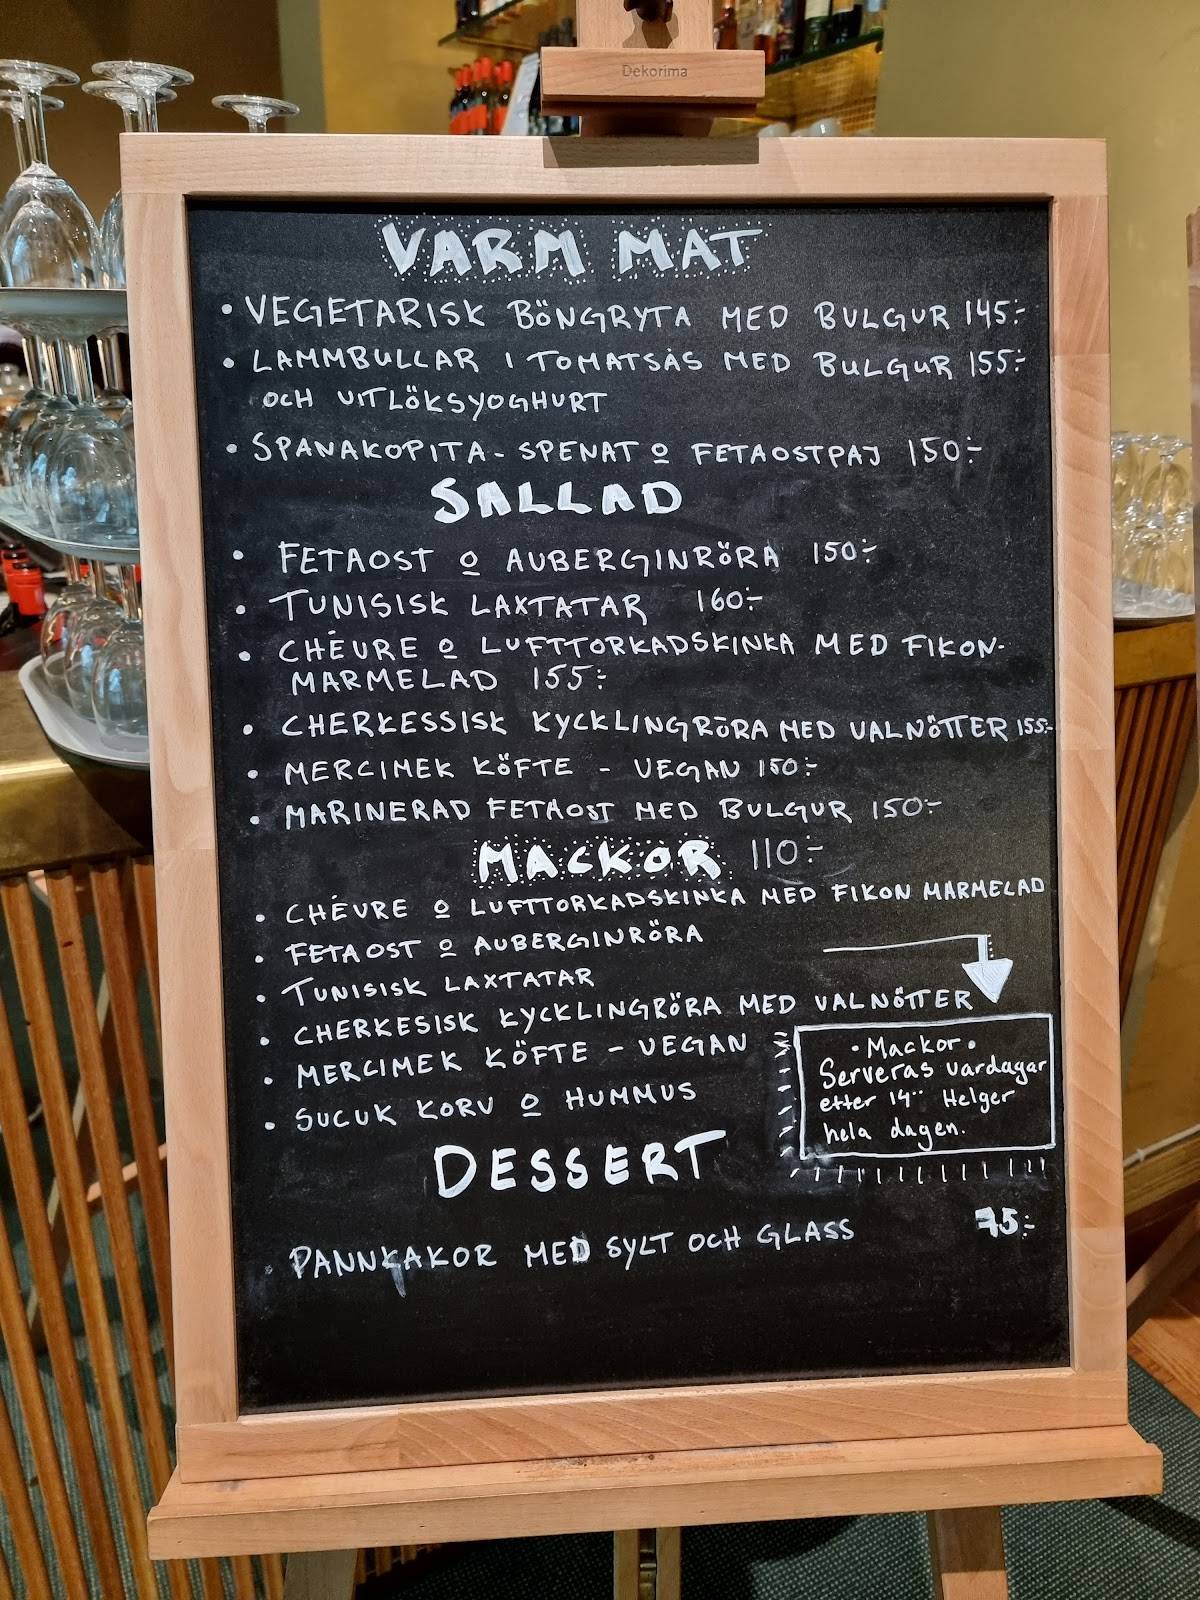 Dekorima
VARM MAT
• VEGETARISK BÖNGRYTA MED BULGUR 145:-
• LAMMBULLAR I TOMATSÅS MED BULGUR 155:-
OCH VITLÖKSYOGHURT
• SPANAKOPITA - SPENAT O FETAOSTPAJ 150:-
SALLAD
• FETAOST O AUBERGINRÖRA 150:-
• TUNISISK LAXTATAR 160:-
• CHÉVRE O LUFTTORKADSKINKA MED FIKON-
MARMELAD 155:-
• CHERKESSISK KYCKLINGRÖRA MED VALNÖTTER 155:-
• MERCIMEK KÖFTE - VEGAN 150:-
• MARINERAD FETAOST MED BULGUR 150:-
MACKOR 110:-
• CHÉVRE O LUFTTORKADSKINKA MED FIKON MARMELAD
• FETAOST O AUBERGINRÖRA
• TUNISISK LAXTATAR
• CHERKESISK KYCKLINGRÖRA MED VALNÖTTER
• MERCIMEK KÖFTE - VEGAN
• SUCUK KORV O HUMMUS
• Mackor •
Serveras vardagar
etter 14¨ Helger
hela dagen.
DESSERT
• PANNKAKOR MED SYLT OCH GLASS 75:-